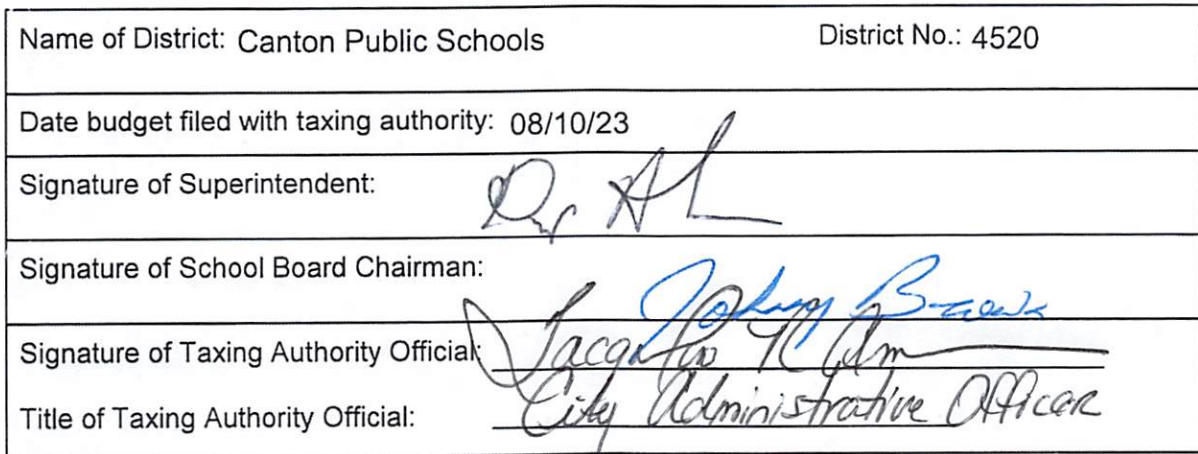 Name of District: Canton Public Schools District No.: 4520
Date budget filed with taxing authority: 08/10/23
Signature of Superintendent:
Signature of School Board Chairman: Johnny Brown
Signature of Taxing Authority Official:
Title of Taxing Authority Official: City Administrative Officer